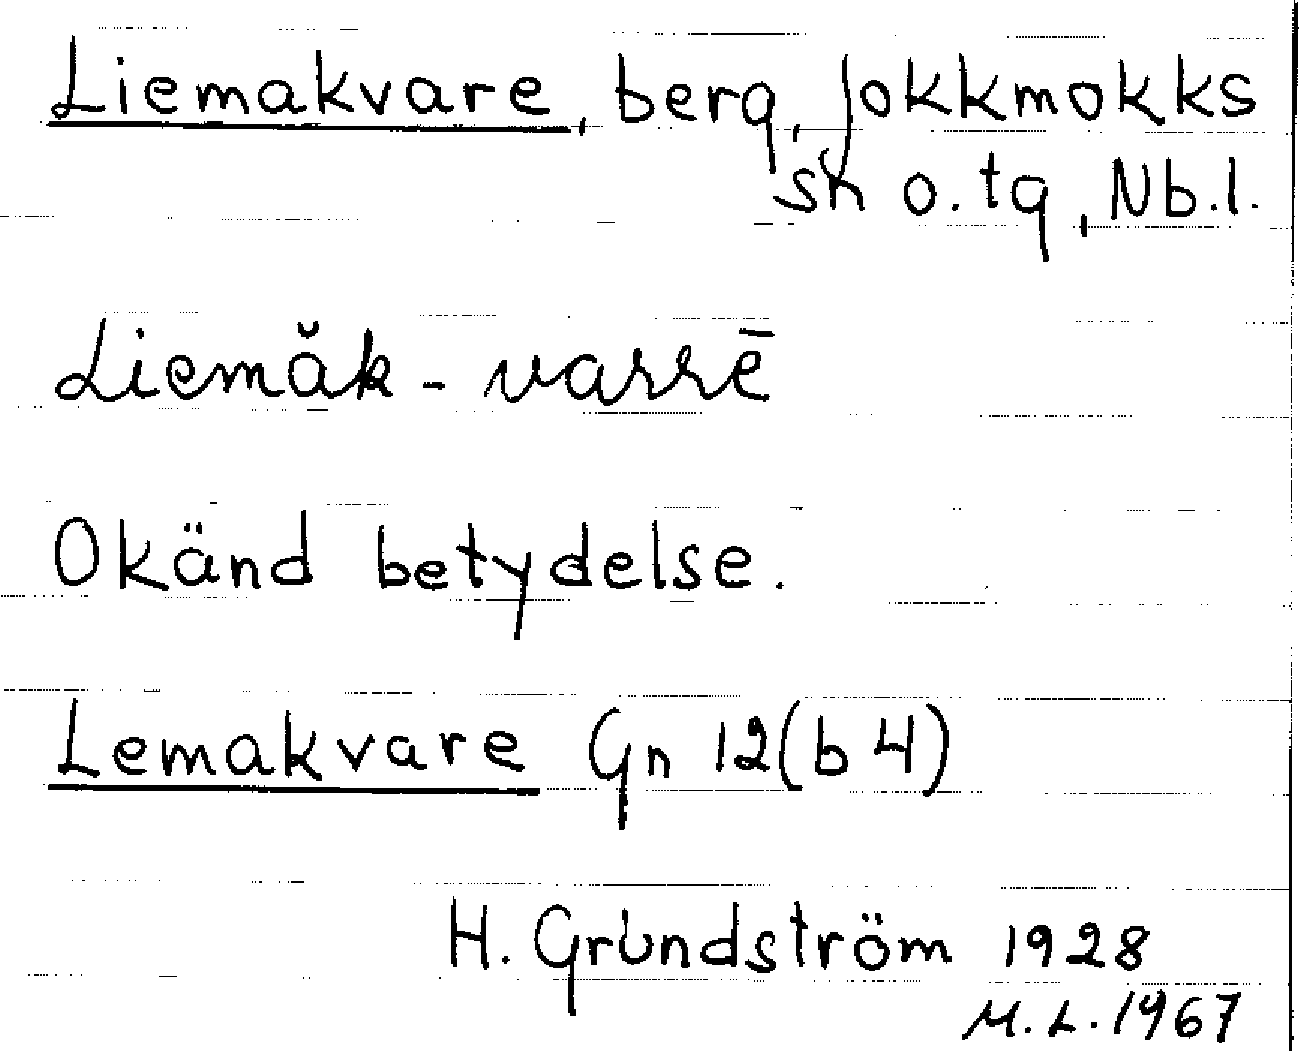 Liemakvare, berg, Jokkmokks
sn o. tg, Nb.l.
Liemăk - varrē
Okänd betydelse.
Lemakvare Gn 12(b4)
H. Grundström 1928
M.L. 1967